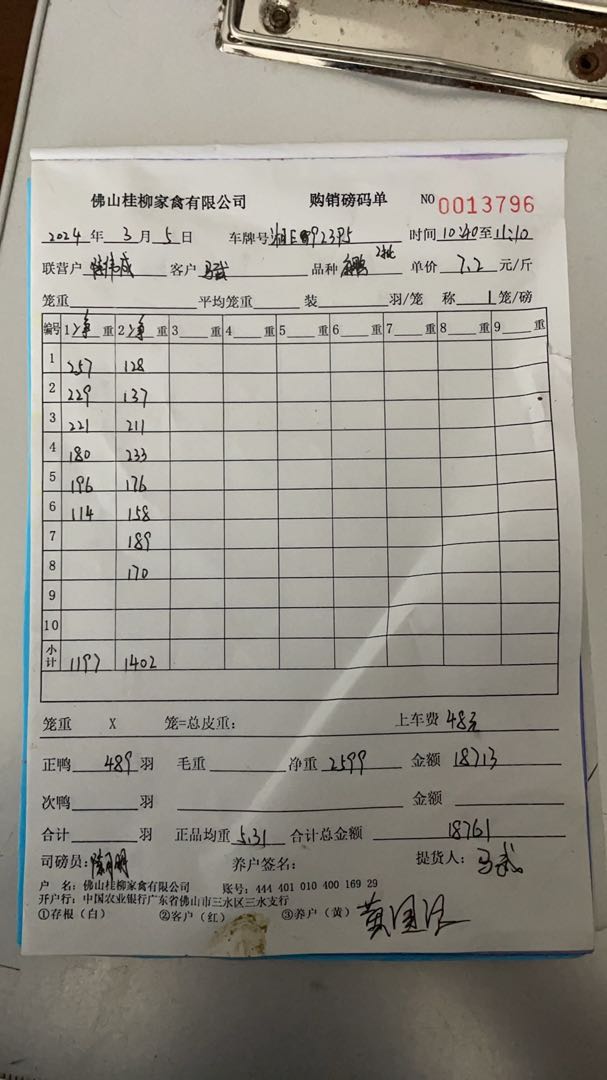 佛山桂柳家禽有限公司 购销磅码单 NO 0013796
2024 年 3 月 5 日 车牌号 时间 10:40 至 11:10
联营户 客户 马武 品种 单价 7.2 元/斤
笼重 平均笼重 装 羽/笼 称 1 笼/磅
编号 1 净 重 2 净 重 3 重 4 重 5 重 6 重 7 重 8 重 9 重
1 257 128
2 229 137
3 221 211
4 180 233
5 196 176
6 114 158
7 189
8 170
9
10
小计 1197 1402
笼重 X 笼=总皮重： 上车费 48元
正鸭 489 羽 毛重 净重 2599 金额 18713
次鸭 羽 金额
合计 羽 正品均重 5.31 合计总金额 18761
司磅员： 养户签名： 提货人： 马武
户 名：佛山桂柳家禽有限公司 账号：444 401 010 400 169 29
开户行：中国农业银行广东省佛山市三水区三水支行
①存根（白） ②客户（红） ③养户（黄）